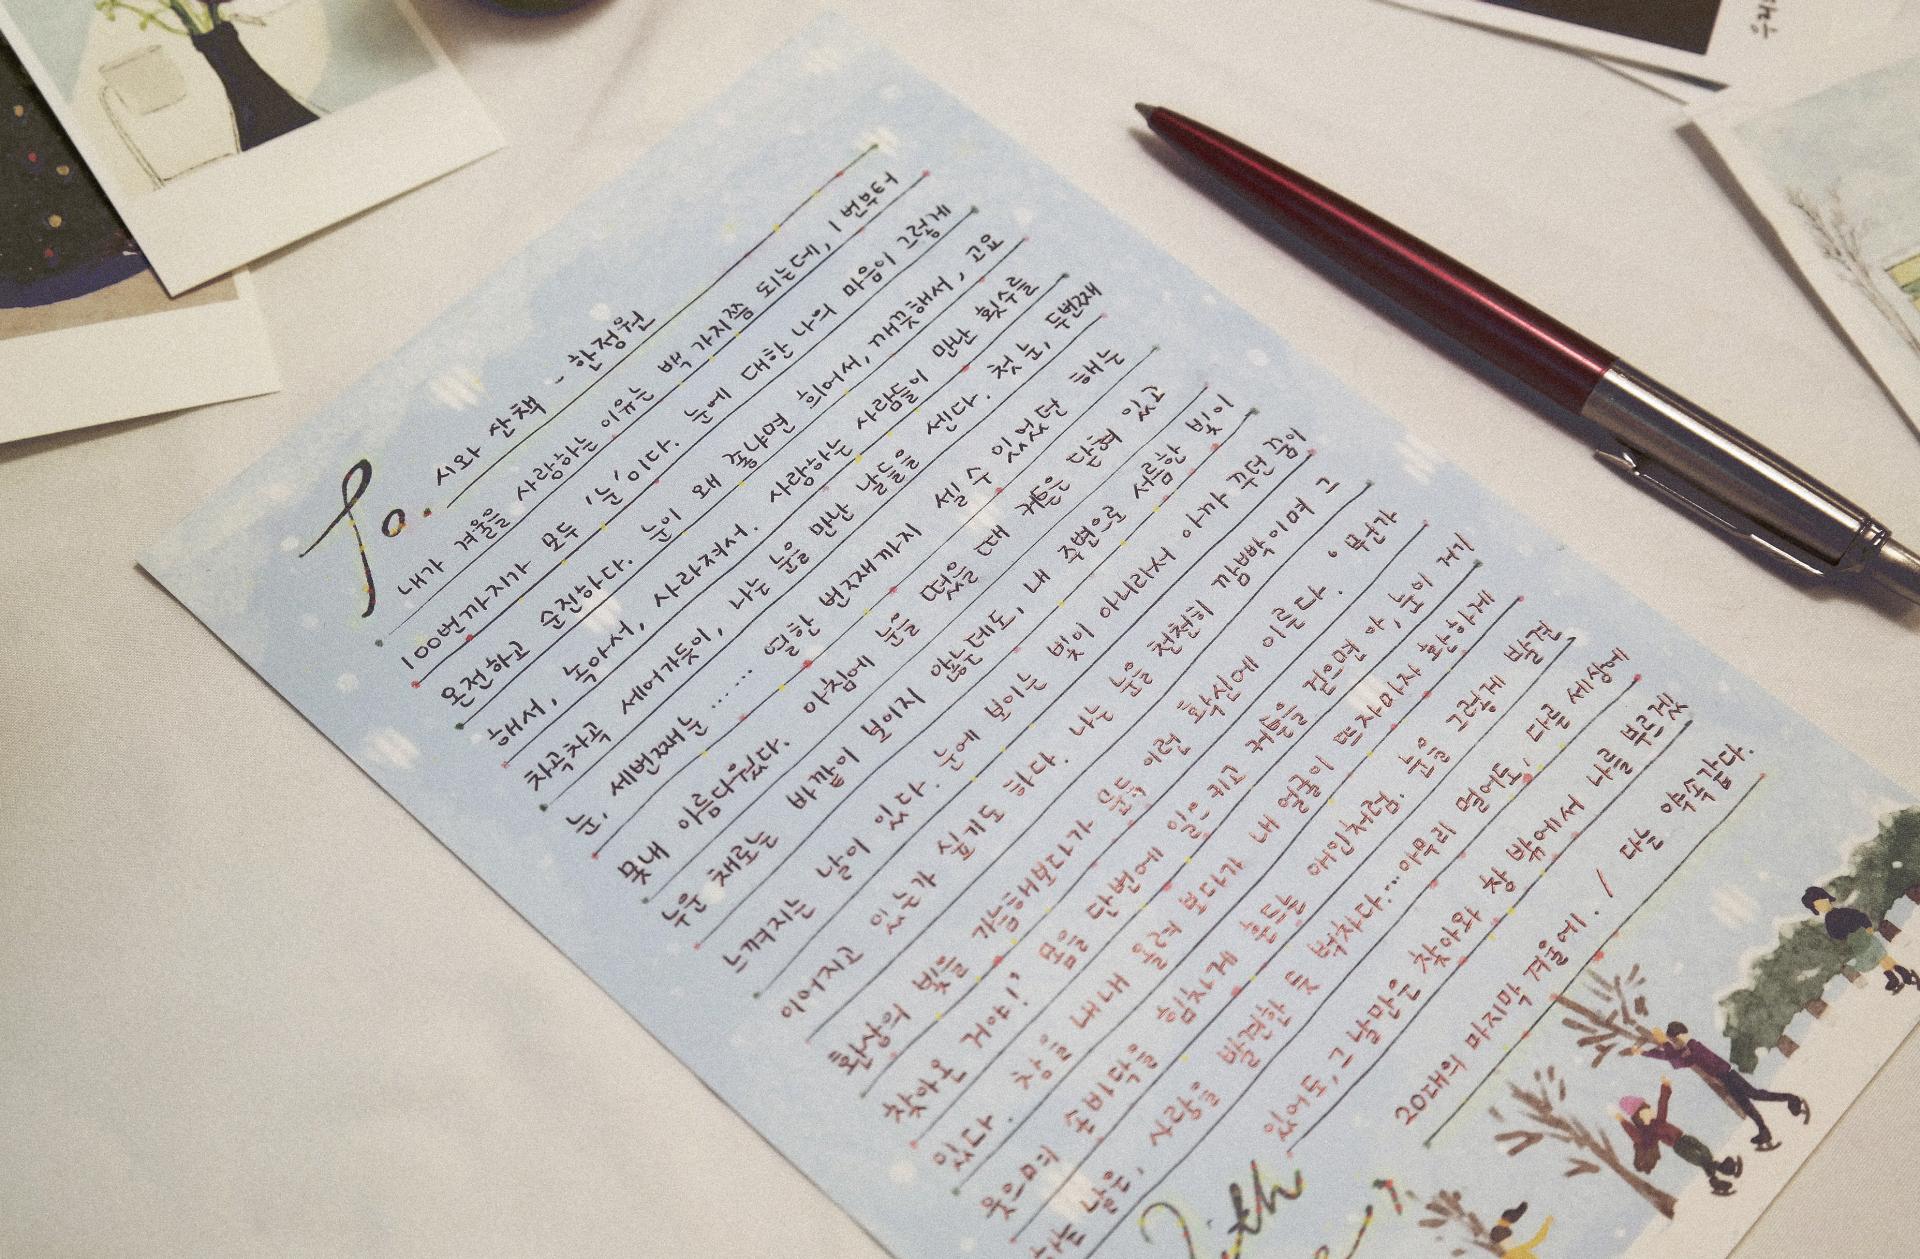 To. 시와 산책 - 한정원
내가 겨울을 사랑하는 이유는 백 가지쯤 되는데, 1번부터
100번까지가 모두 '눈'이다. 눈에 대한 나의 마음이 그렇게
온전하고 순진하다. 눈이 왜 좋냐면 희어서, 깨끗해서, 고요
해서, 녹아서, 사라져서. 사랑하는 사람들이 만난 횟수를
차곡차곡 세어가듯이, 나는 눈을 만난 날들을 센다. 첫 눈, 두번째
눈, 세번째눈 ...... 열한 번째까지 셀 수 있었던 해는
못내 아름다웠다. 아침에 눈을 떴을 때 커튼은 닫혀 있고
누운 채로는 바깥이 보이지 않는데도, 내 주변으로 서름한 빛이
느껴지는 날이 있다. 눈에 보이는 빛이 아니라서 아까 꾸던 꿈이
이어지고 있는가 싶기도 하다. 나는 눈을 천천히 깜박이며 그
환상의 빛을 가늠해보다가 문득 이런 확신에 이른다. '무언가
찾아온 거야!' 몸을 단번에 일으키고 커튼을 걷으면 아, 눈이 거기
있다. 창을 내내 올려 보다가 내 얼굴이 뜨자마자 환하게
웃으며 손바닥을 힘차게 흔드는 애인처럼. 눈을 그렇게 발견
하는 날은, 사랑을 발견한 듯 벅차다...아무리 멀어도, 다른 세상에
있어도, 그 날만은 찾아와 창 밖에서 나를 부르겠
다는 약속같다.
20대의 마지막 겨울에. /
With
우리